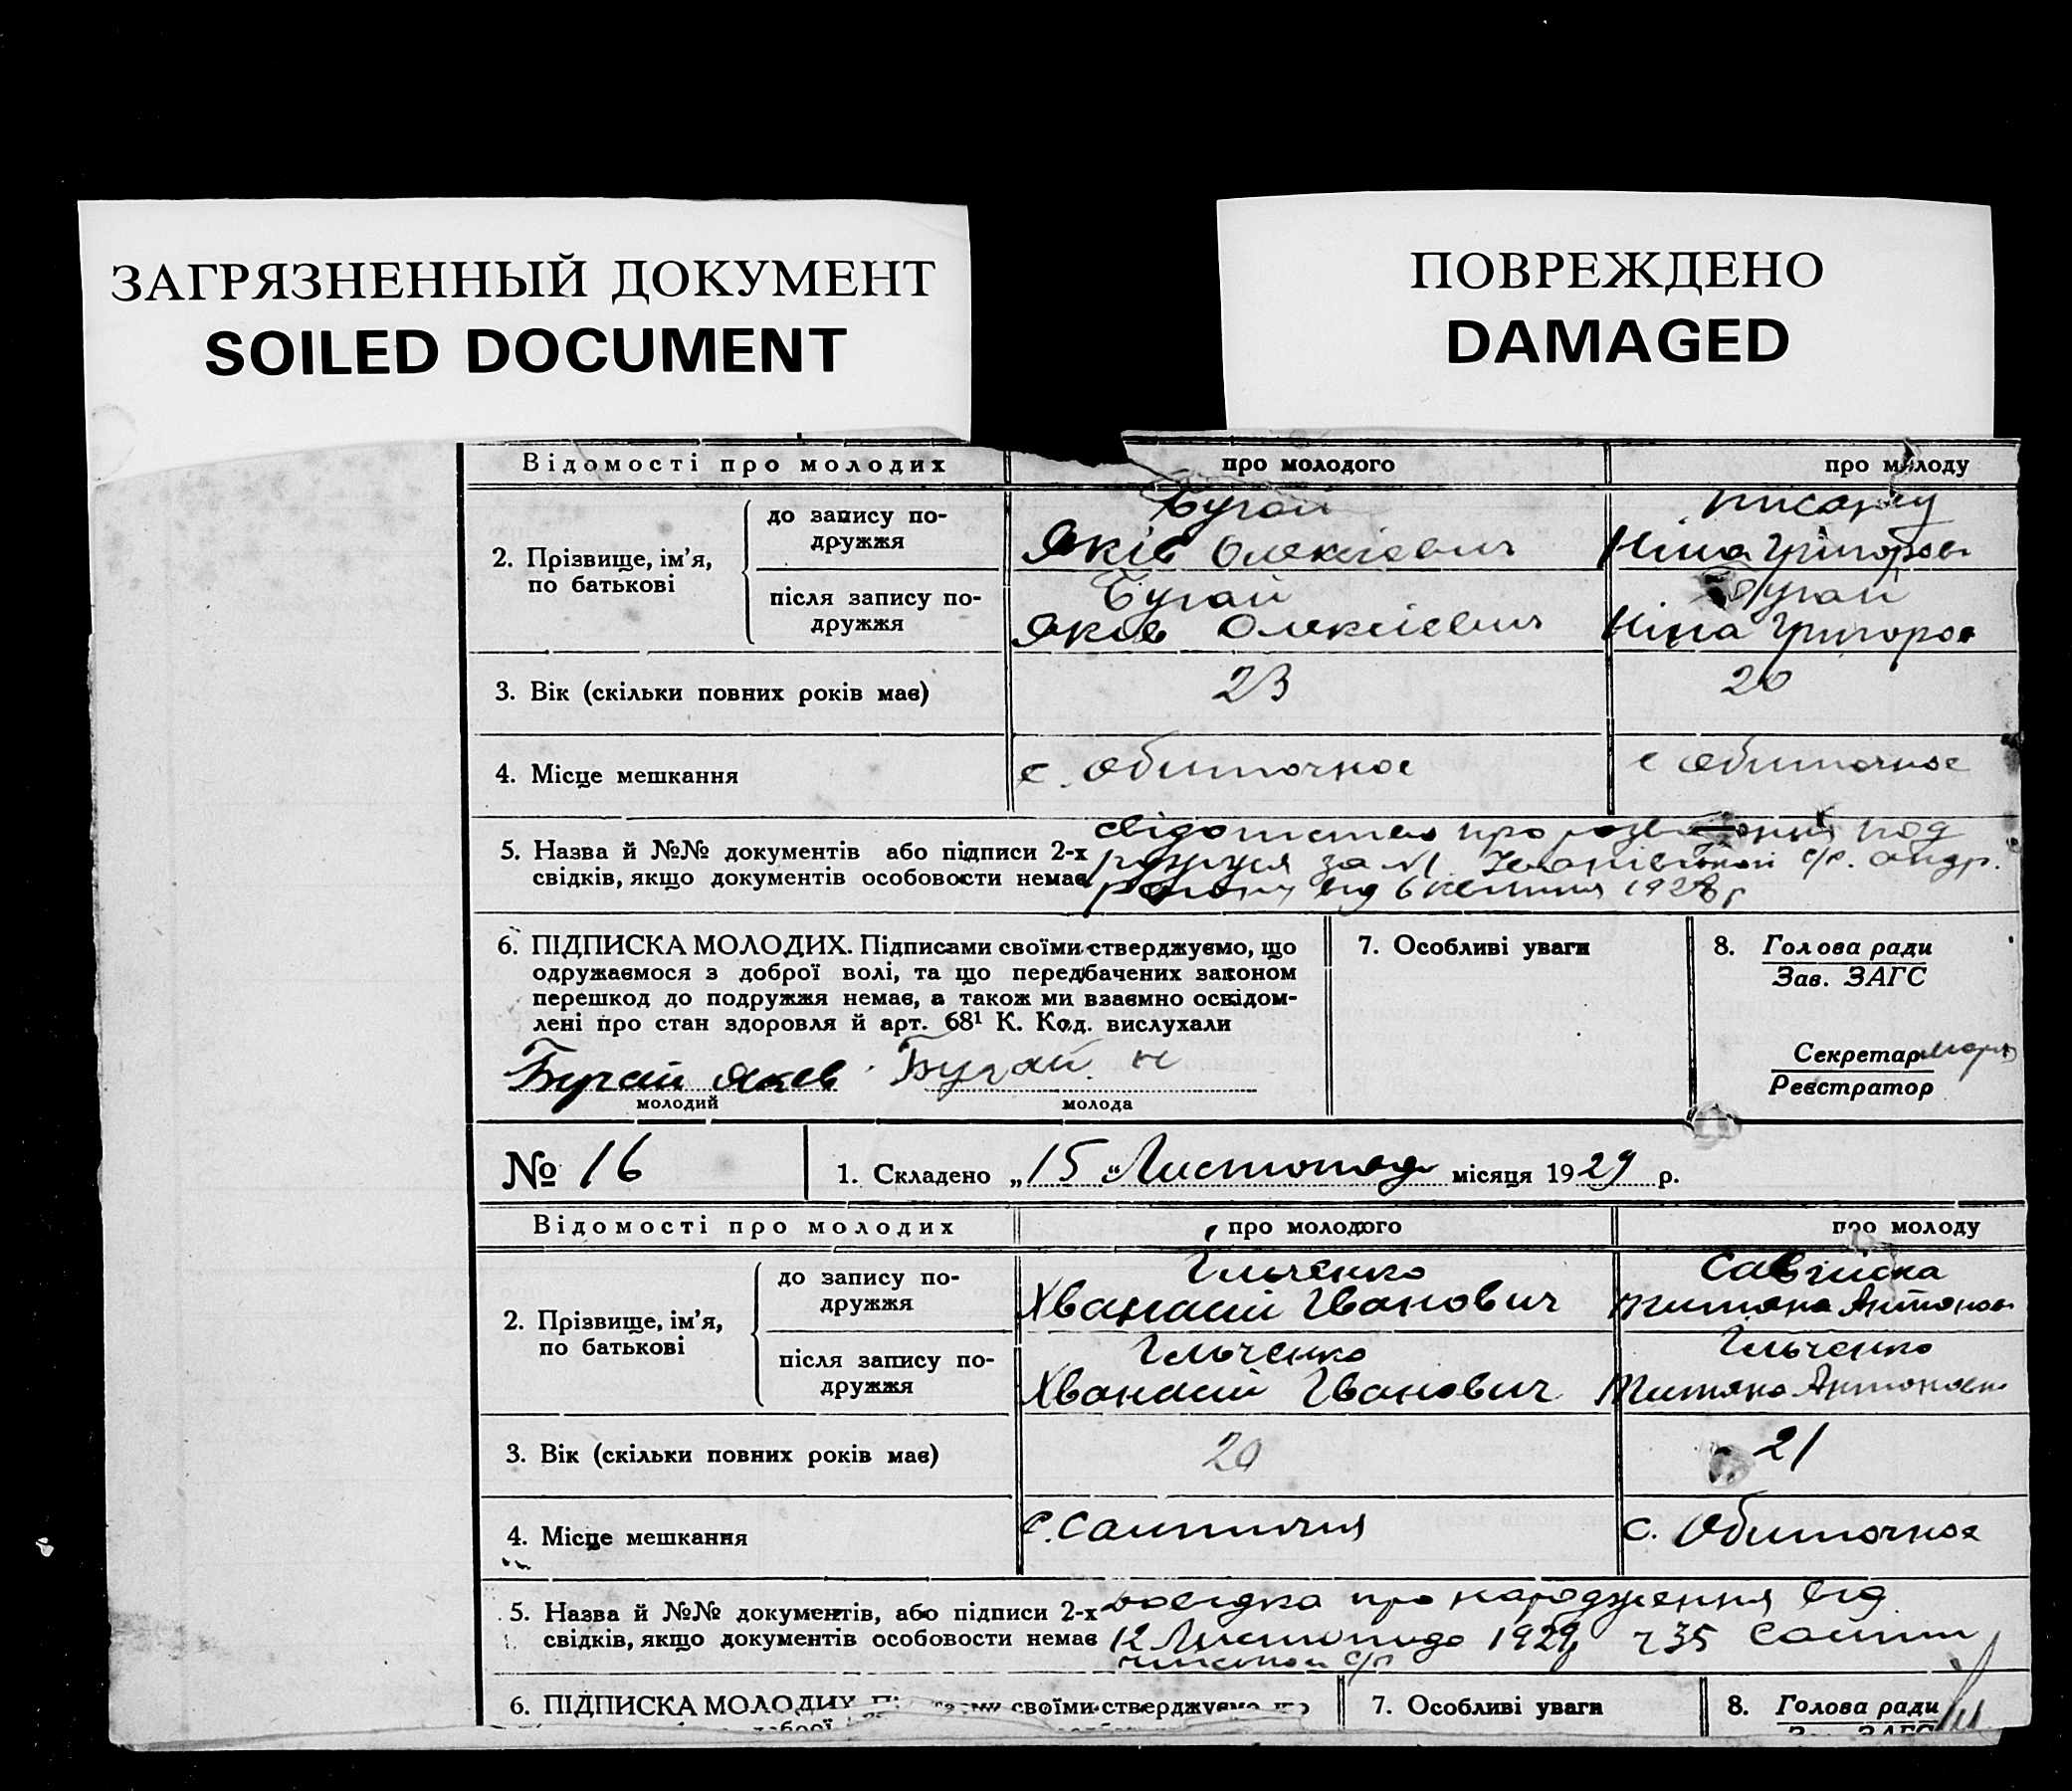 ЗАГРЯЗНЕННЫЙ ДОКУМЕНТ
SOILED DOCUMENT
ПОВРЕЖДЕНО
DAMAGED
Відомості про молодих
про молодого
про молоду
2. Прізвище, ім'я, по батькові
до запису подружжя
Бугай
Яків Олексієвич
Ніна Григоров
після запису подружжя
Бугай
Яков Олексієвич
Бугай
Ніна Григоров
3. Вік (скільки повних років має)
23
20
4. Місце мешкання
с. Обиточное
с Обиточное
5. Назва й №№ документів або підписи 2-х
свідків, якщо документів особовости немає
про
за №1
с/р.
від 6 1928 р
6. ПІДПИСКА МОЛОДИХ. Підписами своїми стверджуємо, що
одружаємося з доброї волі, та що передбачених законом
перешкод до подружжя немає, а також ми взаємно освідом-
лені про стан здоровля й арт. 68¹ К. Код. вислухали
Бугай Яков
молодий
Бугай Н
молода
7. Особливі уваги
8. Голова ради
Зав. ЗАГС
Секретар
Реєстратор
№ 16
1. Складено „15“ Листопад місяця 1929 р.
Відомості про молодих
про молодого
про молоду
2. Прізвище, ім'я, по батькові
до запису подружжя
Ільченко
Хванасій Іванович
Антонов
після запису подружжя
Ільченко
Хванасій Іванович
Ільченко
Антоновн
3. Вік (скільки повних років має)
20
21
4. Місце мешкання
с.
с. Обиточное
5. Назва й №№ документів, або підписи 2-х
свідків, якщо документів особовости немає
посвідка про народження від
12 Листопада 1929 ч 35
с/р
6. ПІДПИСКА МОЛОДИХ. своїми стверджуємо, що
доброї
7. Особливі уваги
8. Голова ради
ЗАГС